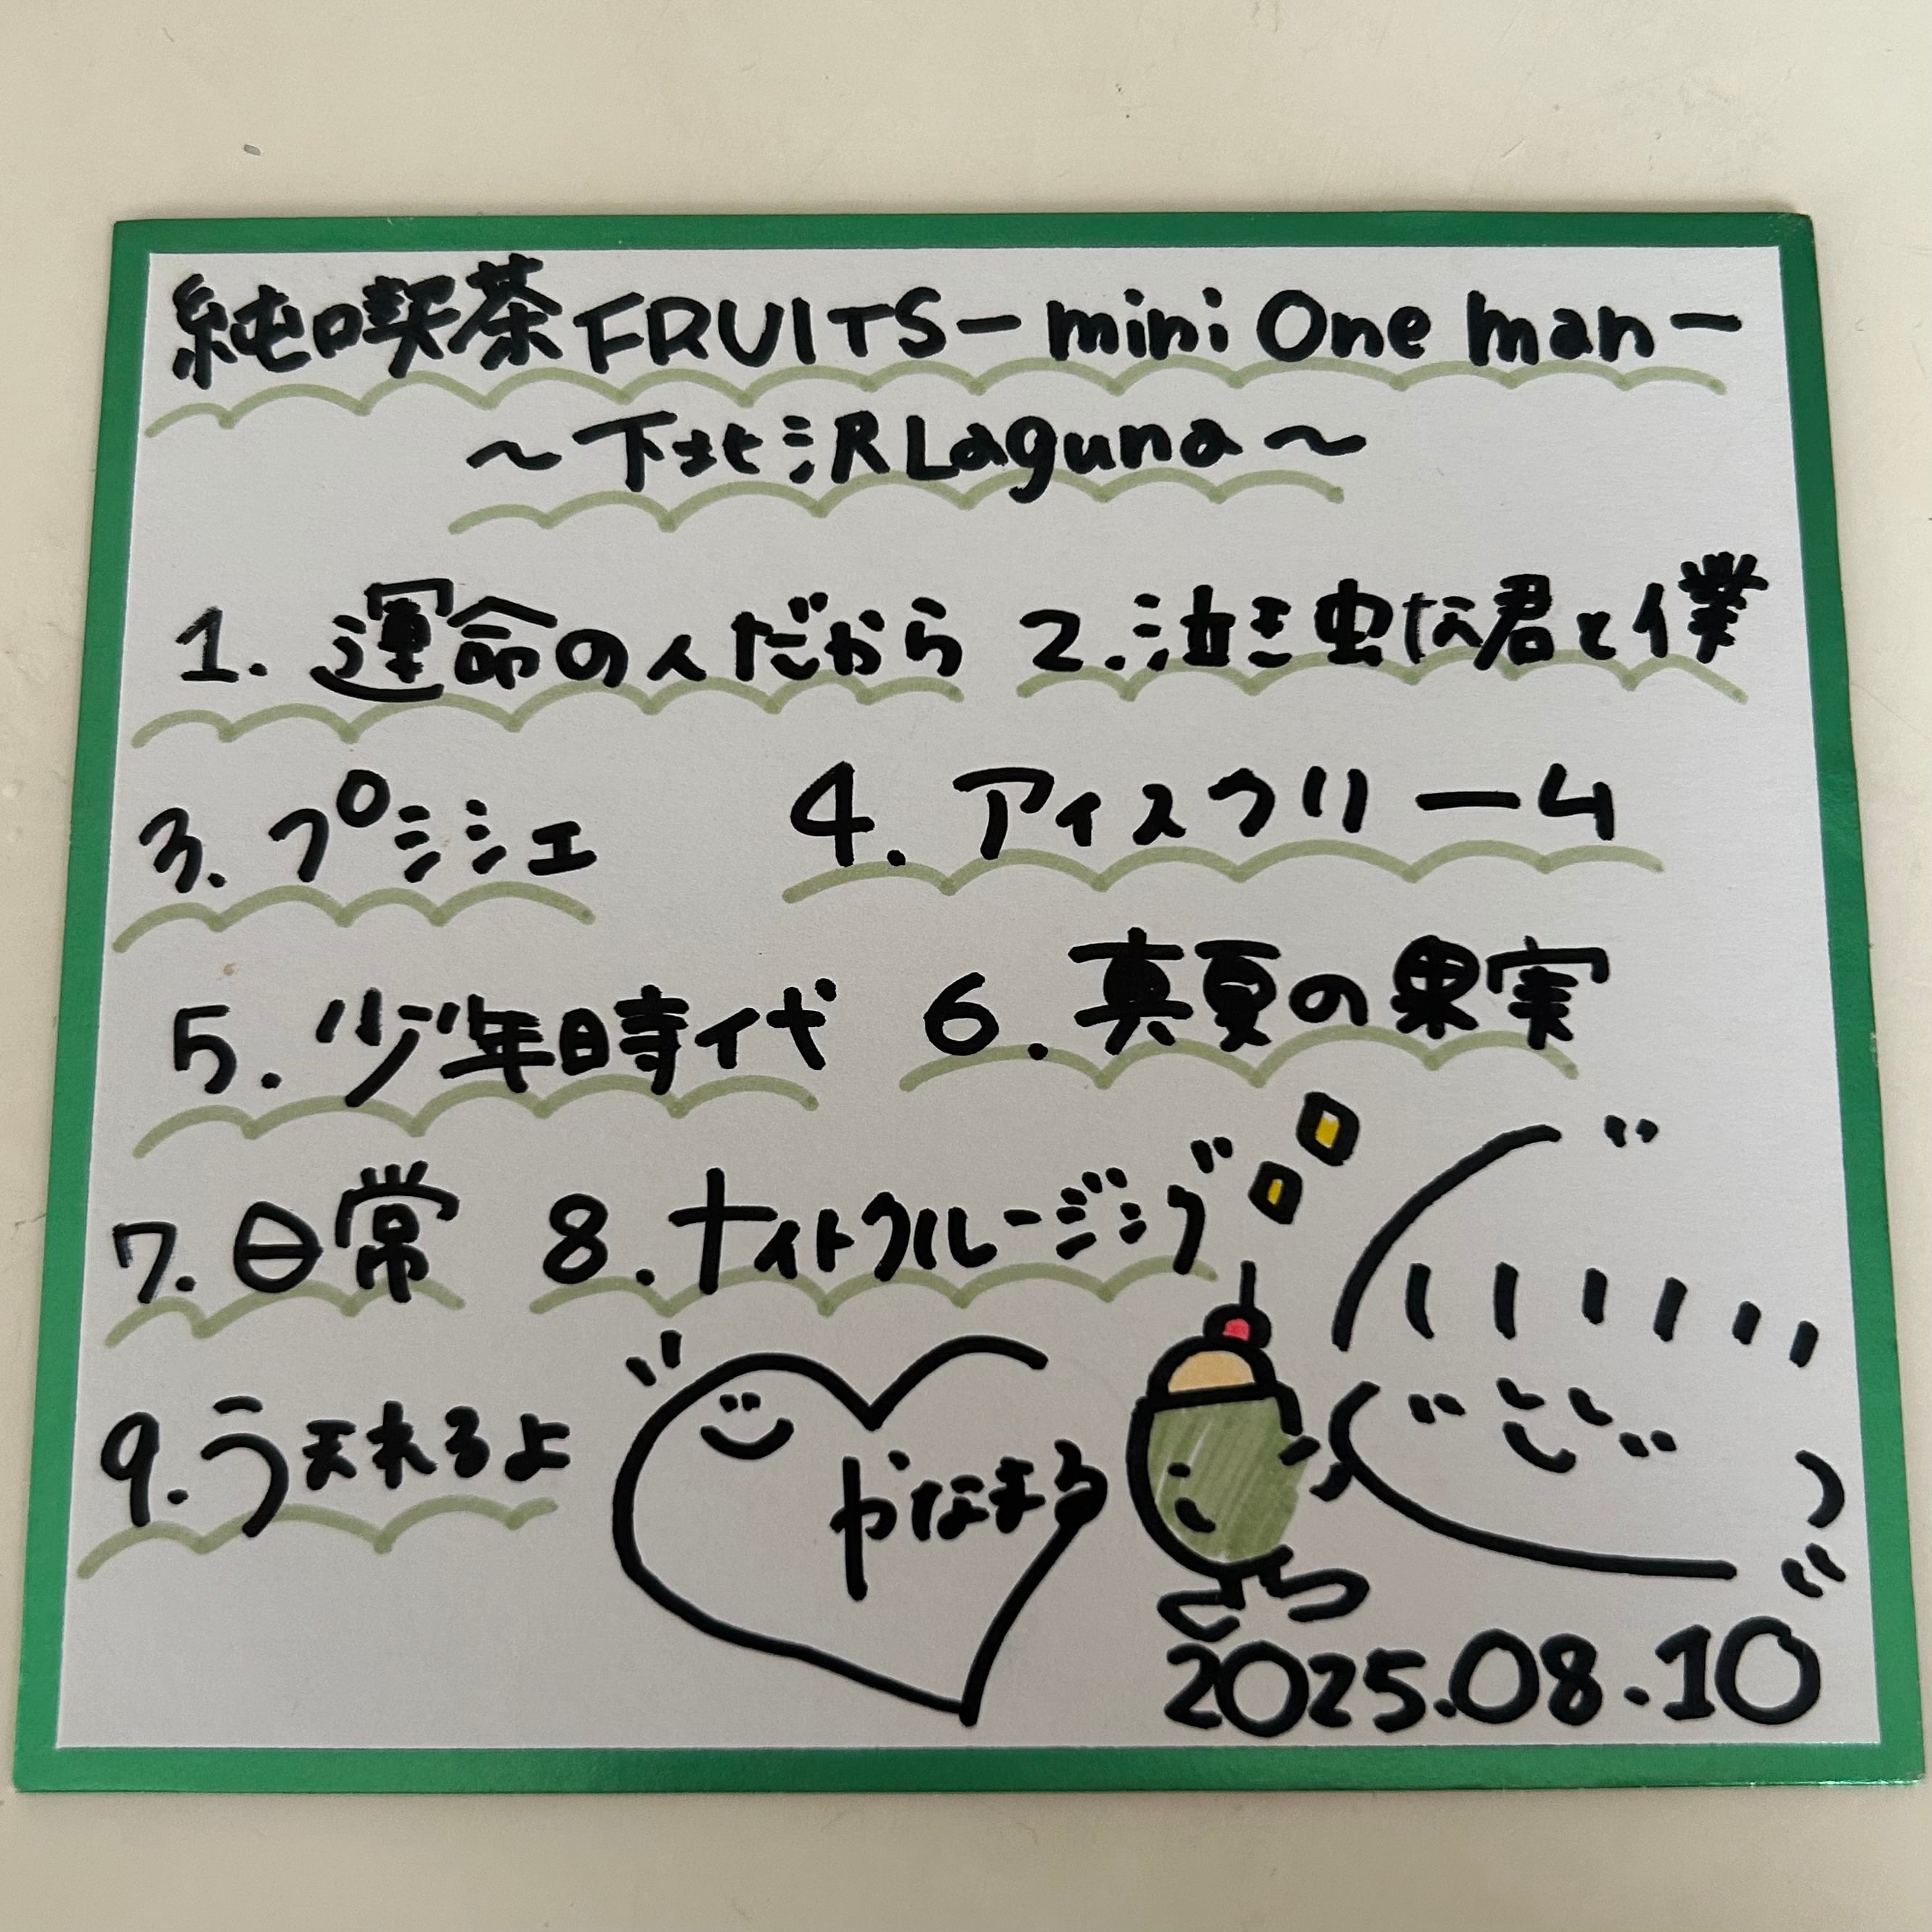 純喫茶FRUITSーmini One manー
〜下北沢Laguna〜
1. 運命の人だから 2. 泣き虫な君と僕
3. プシシェ 4. アイスクリーム
5. 少年時代 6. 真夏の果実
7. 日常 8. ナイトクルージング
9. うまれるよ
かなまる
2025.08.10